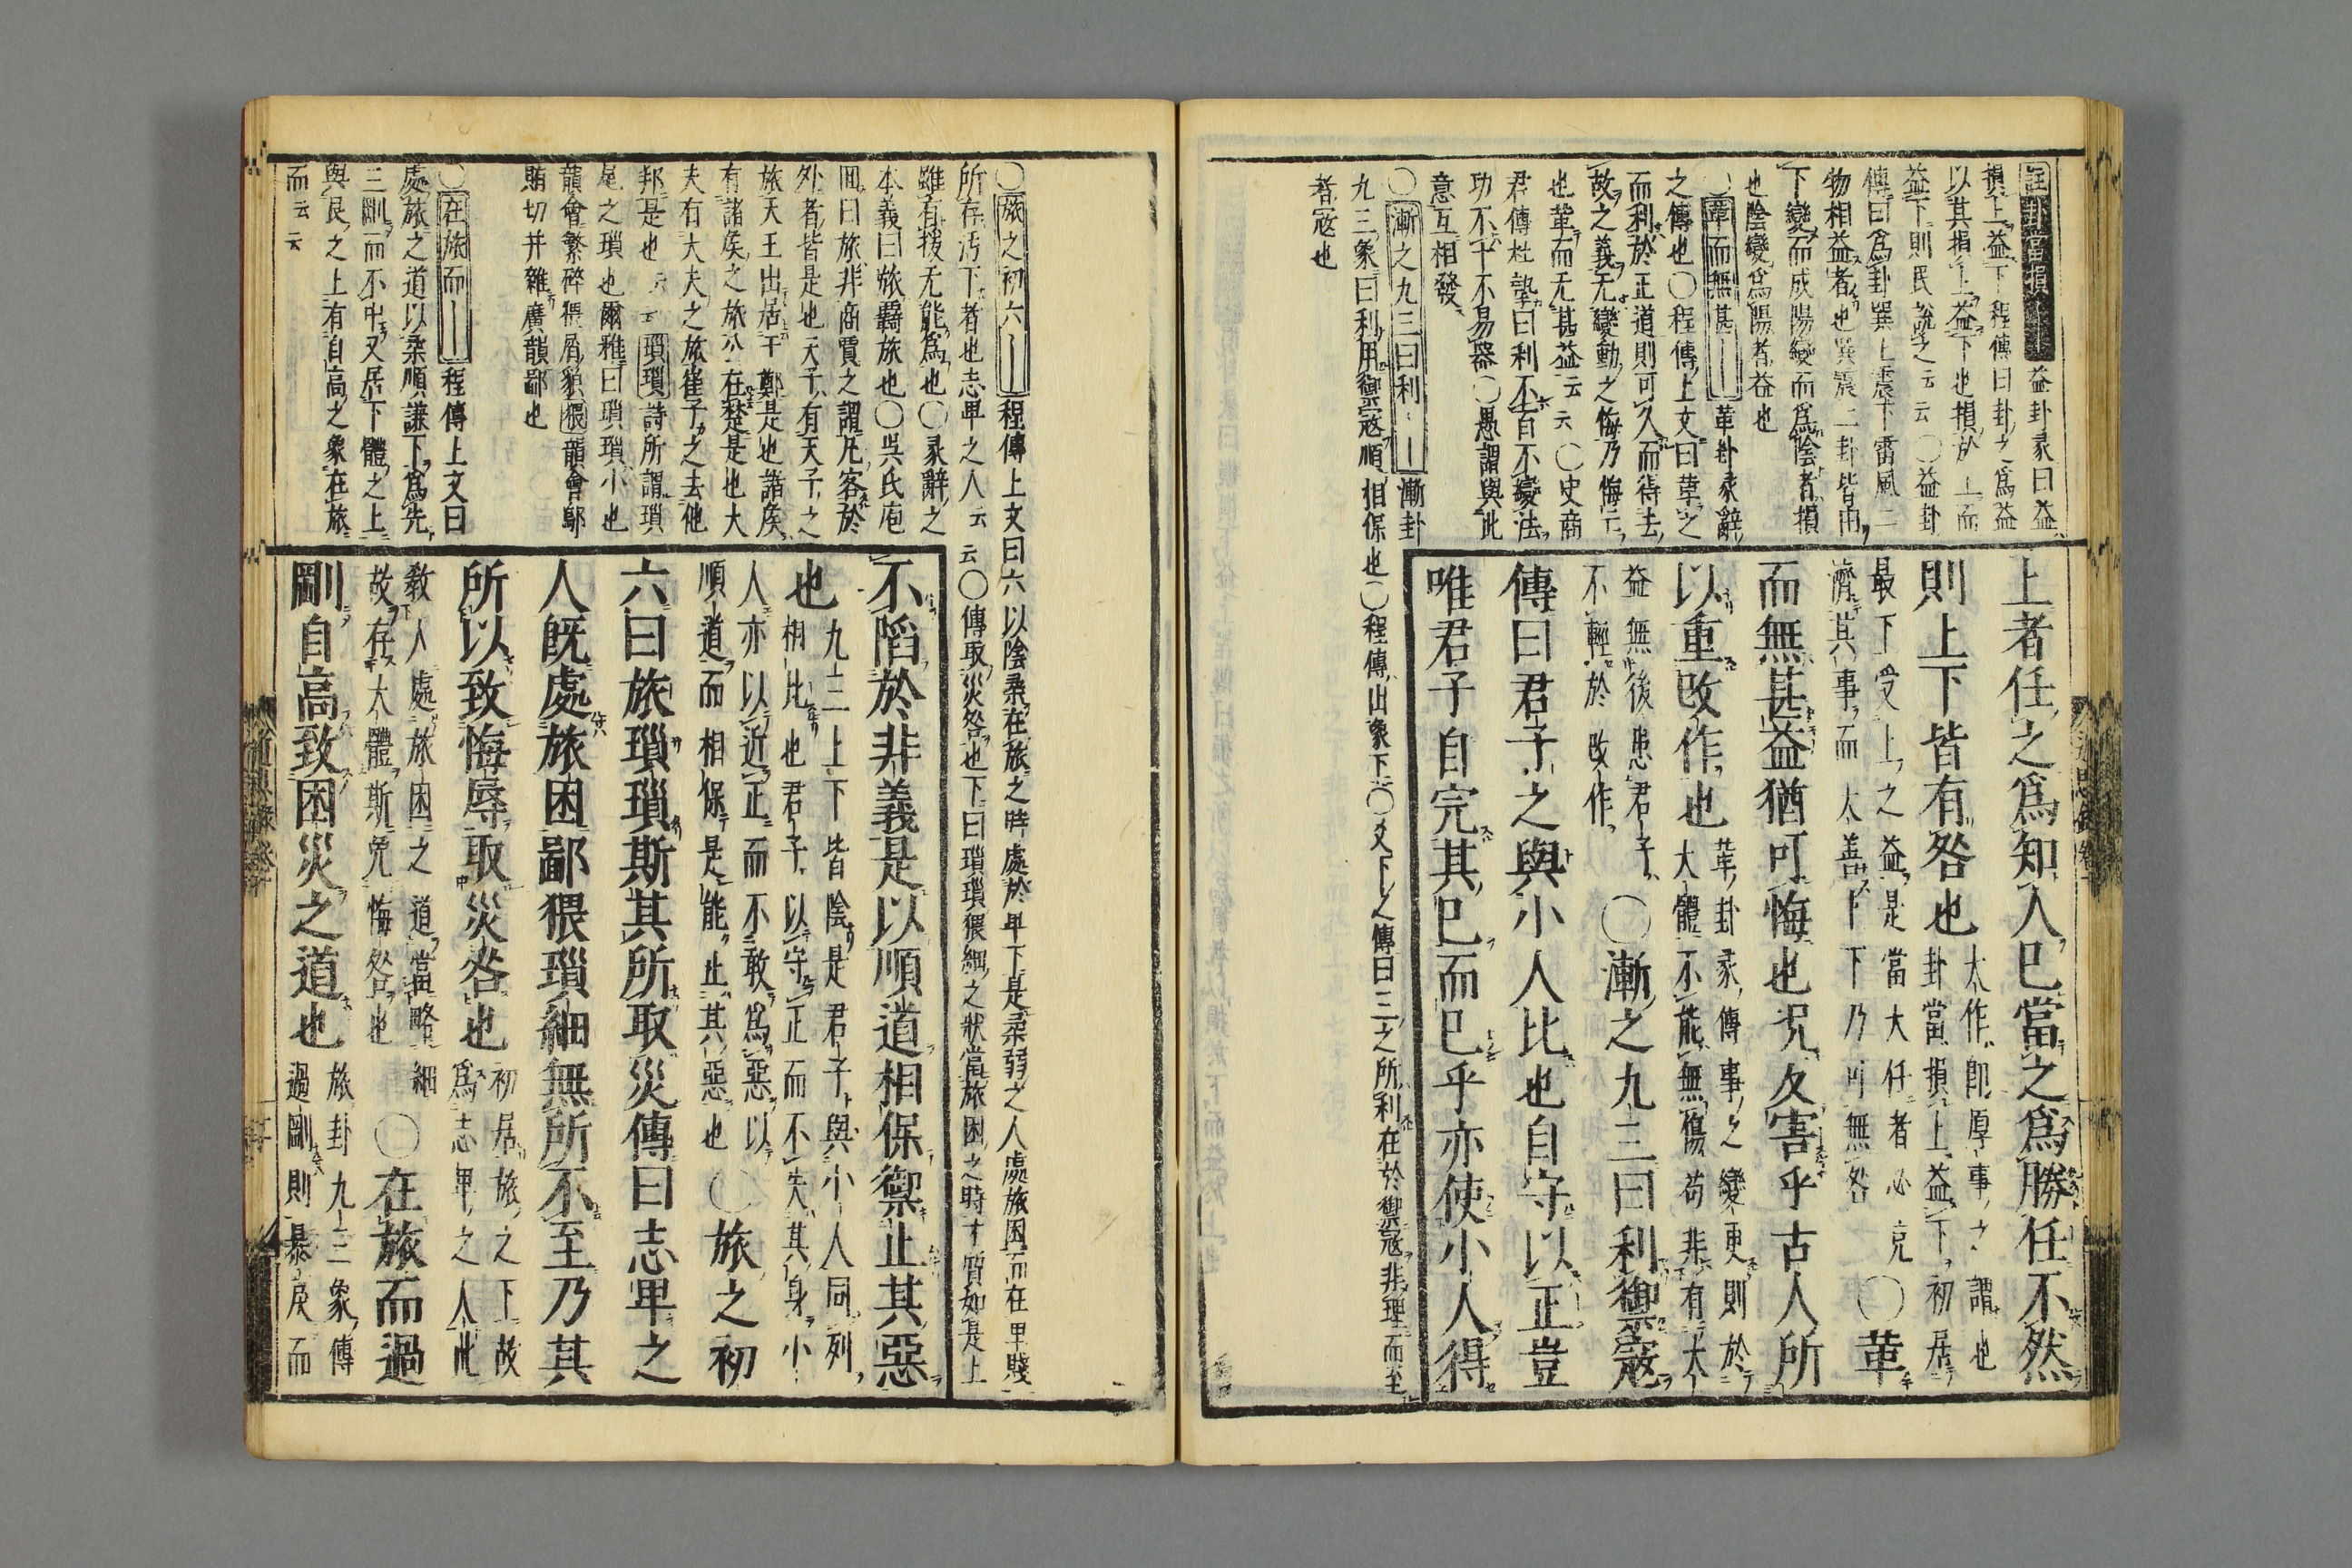 註卦當損｜｜益卦彖曰益
損上益下程傳曰卦之爲益
以其損上益下也損於上而
益下則民說之云云〇益卦
傳曰爲卦巽上震下雷風二
物相益者也巽震二卦皆由
下變而成陽變而爲陰者損
也陰變爲陽者益也
〇革而無甚｜｜革卦彖辭
之傳也〇程傳上文曰革之
而利於正道則可久而得去
故之義无變動之悔乃悔亡
也革而无甚益云云〇史商
君傳杜摯曰利不百不變法
功不十不易器〇愚謂與此
意互相發
〇漸之九三曰利｜｜漸卦
九三象曰利用禦寇順相保也〇程傳出象下〇爻下之傳曰三之所利在於禦寇非理而至
者寇也
上者任之爲知人己當之爲勝任不然
則上下皆有咎也
大作即厚事之謂也
卦當損上益下初居
最下受上之益是當大任者必克
濟其事而大善上下乃可無咎
〇革
而無甚益猶可悔也況反害乎古人所
以重改作也
革卦彖傳事之變更則於
大體不能無傷苟非有大
益無後患君子
不輕於改作
〇漸之九三曰利禦寇
傳曰君子之與小人比也自守以正豈
唯君子自完其己而已乎亦使小人得
〇旅之初六｜｜程傳上文曰六以陰柔在旅之時處於卑下是柔弱之人處旅困而在卑賤
所存汚下者也志卑之人云云〇傳取災咎也下曰瑣瑣猥細之狀當旅困之時才質如是上
雖有援无能爲也〇彖辭之
本義曰旅羇旅也〇吳氏庖
囬曰旅非商賈之謂凡客於
外者皆是也天子有天子之
旅天王出居于鄭是也諸侯
有諸侯之旅公在楚是也大
夫有大夫之旅崔子之去他
邦是也云云瑣瑣詩所謂瑣
尾之瑣也爾雅曰瑣瑣小也
韻會繁碎猥屑貌猥韻會鄔
賄切并雜廣韻鄙也
〇在旅而｜｜程傳上文曰
處旅之道以柔順謙下爲先
三剛而不中又居下體之上
與艮之上有自高之象在旅
而云云
不陷於非義是以順道相保禦止其惡
也
九三上下皆陰是君子與小人同列
相比也君子以守正而不失其身小
人亦以近正而不敢爲惡以
順道而相保是能止其惡也
〇旅之初
六曰旅瑣瑣斯其所取災傳曰志卑之
人既處旅困鄙猥瑣細無所不至乃其
所以致悔辱取災咎也
初居旅之下故
爲志卑之人此
敎人處旅困之道當略細
故存大體斯免悔咎也
〇在旅而過
剛自高致困災之道也
旅卦九三象傳
過剛則暴戾而